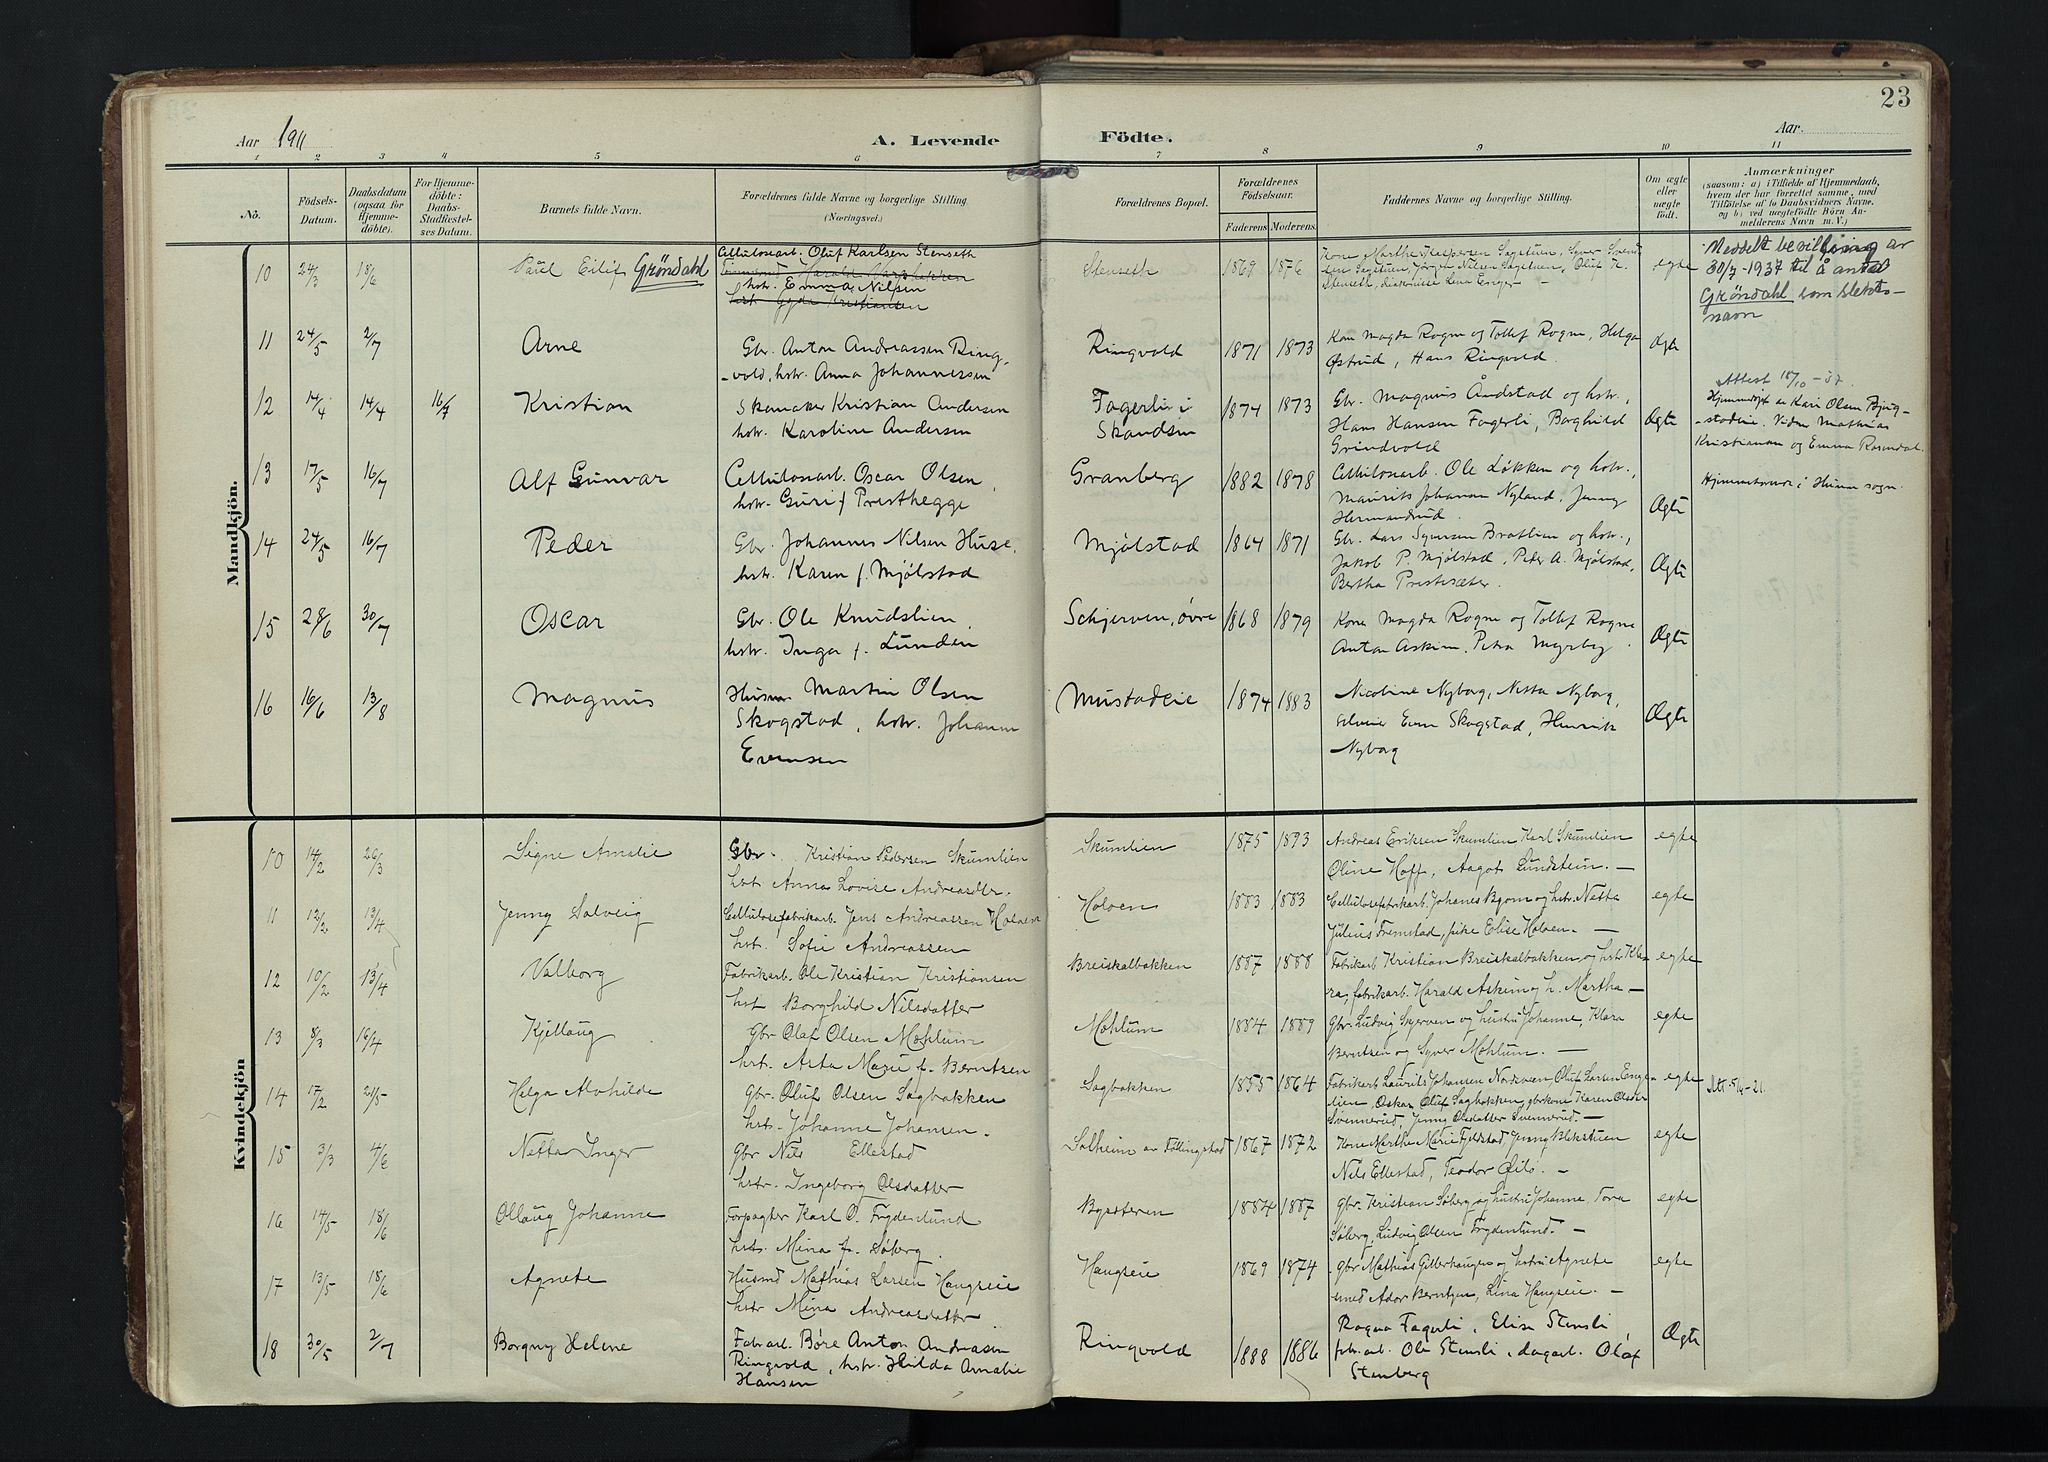 23
Aar 1911
A. Levende Födte.
Aar
1 2 3 4 5 6 7 8 9 10 11
No.
Födsels-Datum.
Daabsdatum (ogsaa for Hjemmedöbte).
For Hjemmedöbte: Daabs-Stadfæstelses Datum.
Barnets fulde Navn.
Forældrenes fulde Navne og borgerlige Stilling. (Næringsvei.)
Forældrenes Bopæl.
Forældrenes Födselsaar.
Faderens Moderens
Faddernes Navne og borgerlige Stilling.
Om ægte eller uægte født.
Anmærkninger
(saasom: a) i Tilfælde af Hjemmedaab, hvem der har forrettet samme, med Tilføielse af to Daabsvidners Navne. og b) ved uægtefödte Börn Anmelderens Navn m. V.)
Mandkjön.
10 24/3 18/6 Paul Eilif Gröndahl
Cellulosearb. Oluf Karlsen Stenseth
hstr. Emma Nilsen
Stenseth 1869 1876
egte
Meddelt bevilling av
30/7-1937 til å anta
Gröndahl som slekts-
navn
11 24/5 2/7 Arne
Gbr. Anton Andreassen Ring-
vold, hstr. Anna Johannessen
Ringvold 1871 1873
Kone Magda Rogne og Tollef Rogne, Helga
Østrud, Hans Ringvold.
Ægte
12 14/4 14/4 16/7 Kristian
Skomaker Kristian Andersen
hstr. Karoline Andersen
Fagerli i
Skandsen
1874 1873
Gbr. Magnus Åndstad og hstr.,
Hans Hansen Fagerli, Borghild
Grindvold
Ægte
Attest 18/10-37.
Hjemmedøpt av Kari Olsen
Kristiansen og Emma Rosendal.
13 17/5 16/7 Alf Gunvar
Cellulosearb. Oscar Olsen,
hstr. Guri f. Presthegge
Granberg 1882 1878
Cellulosearb. Ole Løkken og hstr.,
Maurits Johansen Nyland, Jenny
Hermandrud.
Ægte
Hjemmehørende i Hunn sogn.
14 24/5 16/7 Peder
Gbr. Johannes Nilsen Huse,
hstr. Karen f. Mjølstad
Mjølstad 1864 1871
Gbr. Lars Syversen Bratlien og hstr.,
Jakob P. Mjølstad, Peter A. Mjølstad,
Bertha Prestesæter.
Ægte
15 28/6 30/7 Oscar
Gbr. Ole Knudslien,
hstr. Inga f. Lunden
Schjerven, øvre 1868 1879
Kone Magda Rogne og Tollef Rogne
Anton Askim, Petra Myrby.
Ægte
16 16/6 13/8 Magnus
Husm. Martin Olsen
Skogstad, hstr. Johanne
Evensen
Mustadeie 1874 1883
Nicoline Nyborg, Netta Nyborg,
Even Skogstad, Henrik
Nyborg
Ægte
Kvindekjön
10 14/2 26/3 Signe Amelie
Gbr. Kristian Pedersen Skumlien
hst. Anna Lovise Andreasdtr.
Skumlien 1875 1893
Andreas Eriksen Skumlien Karl Skumlien
Oline Hoff, Aagot Lundstein. —
egte
11 12/2 13/4 Jenny Solveig
Cellulosefabrikarb. Jens Andreassen Holven
hst. Sofie Andreassen
Holven 1883 1883
Cellulosefabrikarb. Johanes Bjom og hstr. Netta
Julius Fremstad, pike Elise Holven. —
egte
12 10/2 13/4 Valborg
Fabrikarb. Ole Kristian Kristiansen
hst Borghild Nilsdatter
Breiskalbakken 1887 1888
Fabrikarb Kristian Breiskalbakken og hstr. Kla-
ra, fabrikarb. Harald Askim og h. Martha —
egte
13 8/3 16/4 Kjellaug
Gbr Olaf Olsen Mæhlum
hst. Asta Marie f. Berntsen
Mæhlum 1884 1889
Gbr. Ludvig Skjerven og hustru Johanne, Klara
Berntsen og Syver Mæhlum. —
egte
14 17/2 21/5 Helga Alvhilde
Gbr. Oluf Olsen Sagbakken
hst. Johanne Johansen.
Sagbakken 1855 1864
Fabrikarb Laurits Johansen Nordsveen, Oluf Larsen Enge-
lien, Oskar Oluf Sagbakken, gbrkone Karen Olsen
Svennerud, Jenny Olsdatter Svennerud —
egte
Att. 5/4-21.
15 3/3 4/6 Netta Inger
Gbr Nils Ellestad
hstr. Ingeborg Olsdatter
Solheim av Føllingstad 1867 1872
Kone Marthe Marie Fjeldstad, Jenny Blekstuen
Nils Ellestad, Teodor Øilo. —
egte
16 14/5 18/6 Ollaug Johanne
Forpagter Karl O. Frydenlund
hst. Mina f. Søberg.
Bysveen 1884 1887
Gbr. Kristian Søberg og hustru Johanne, Tora
Søberg, Ludvig Olsen Frydenlund. —
egte
17 13/5 18/6 Agnete
Husmd Mathias Larsen Haugseie
hstr Mina Andreasdatter
Haugseie 1869 1874
Gbr Mathias Gillerhaugen og hstru Agnete
smed Ador Berntzen, Lina Haugseie. —
egte
18 30/5 2/7 Borgny Helene
Fabr.arb. Børe Anton Andreasen
Ringvold, hstr. Hilda Amalie
Hansen
Ringvold 1888 1886
Ragna Fagerli, Elise Stensli
fabr.arb. Ole Stensli, dagarb. Olaf
Stenberg
Ægte